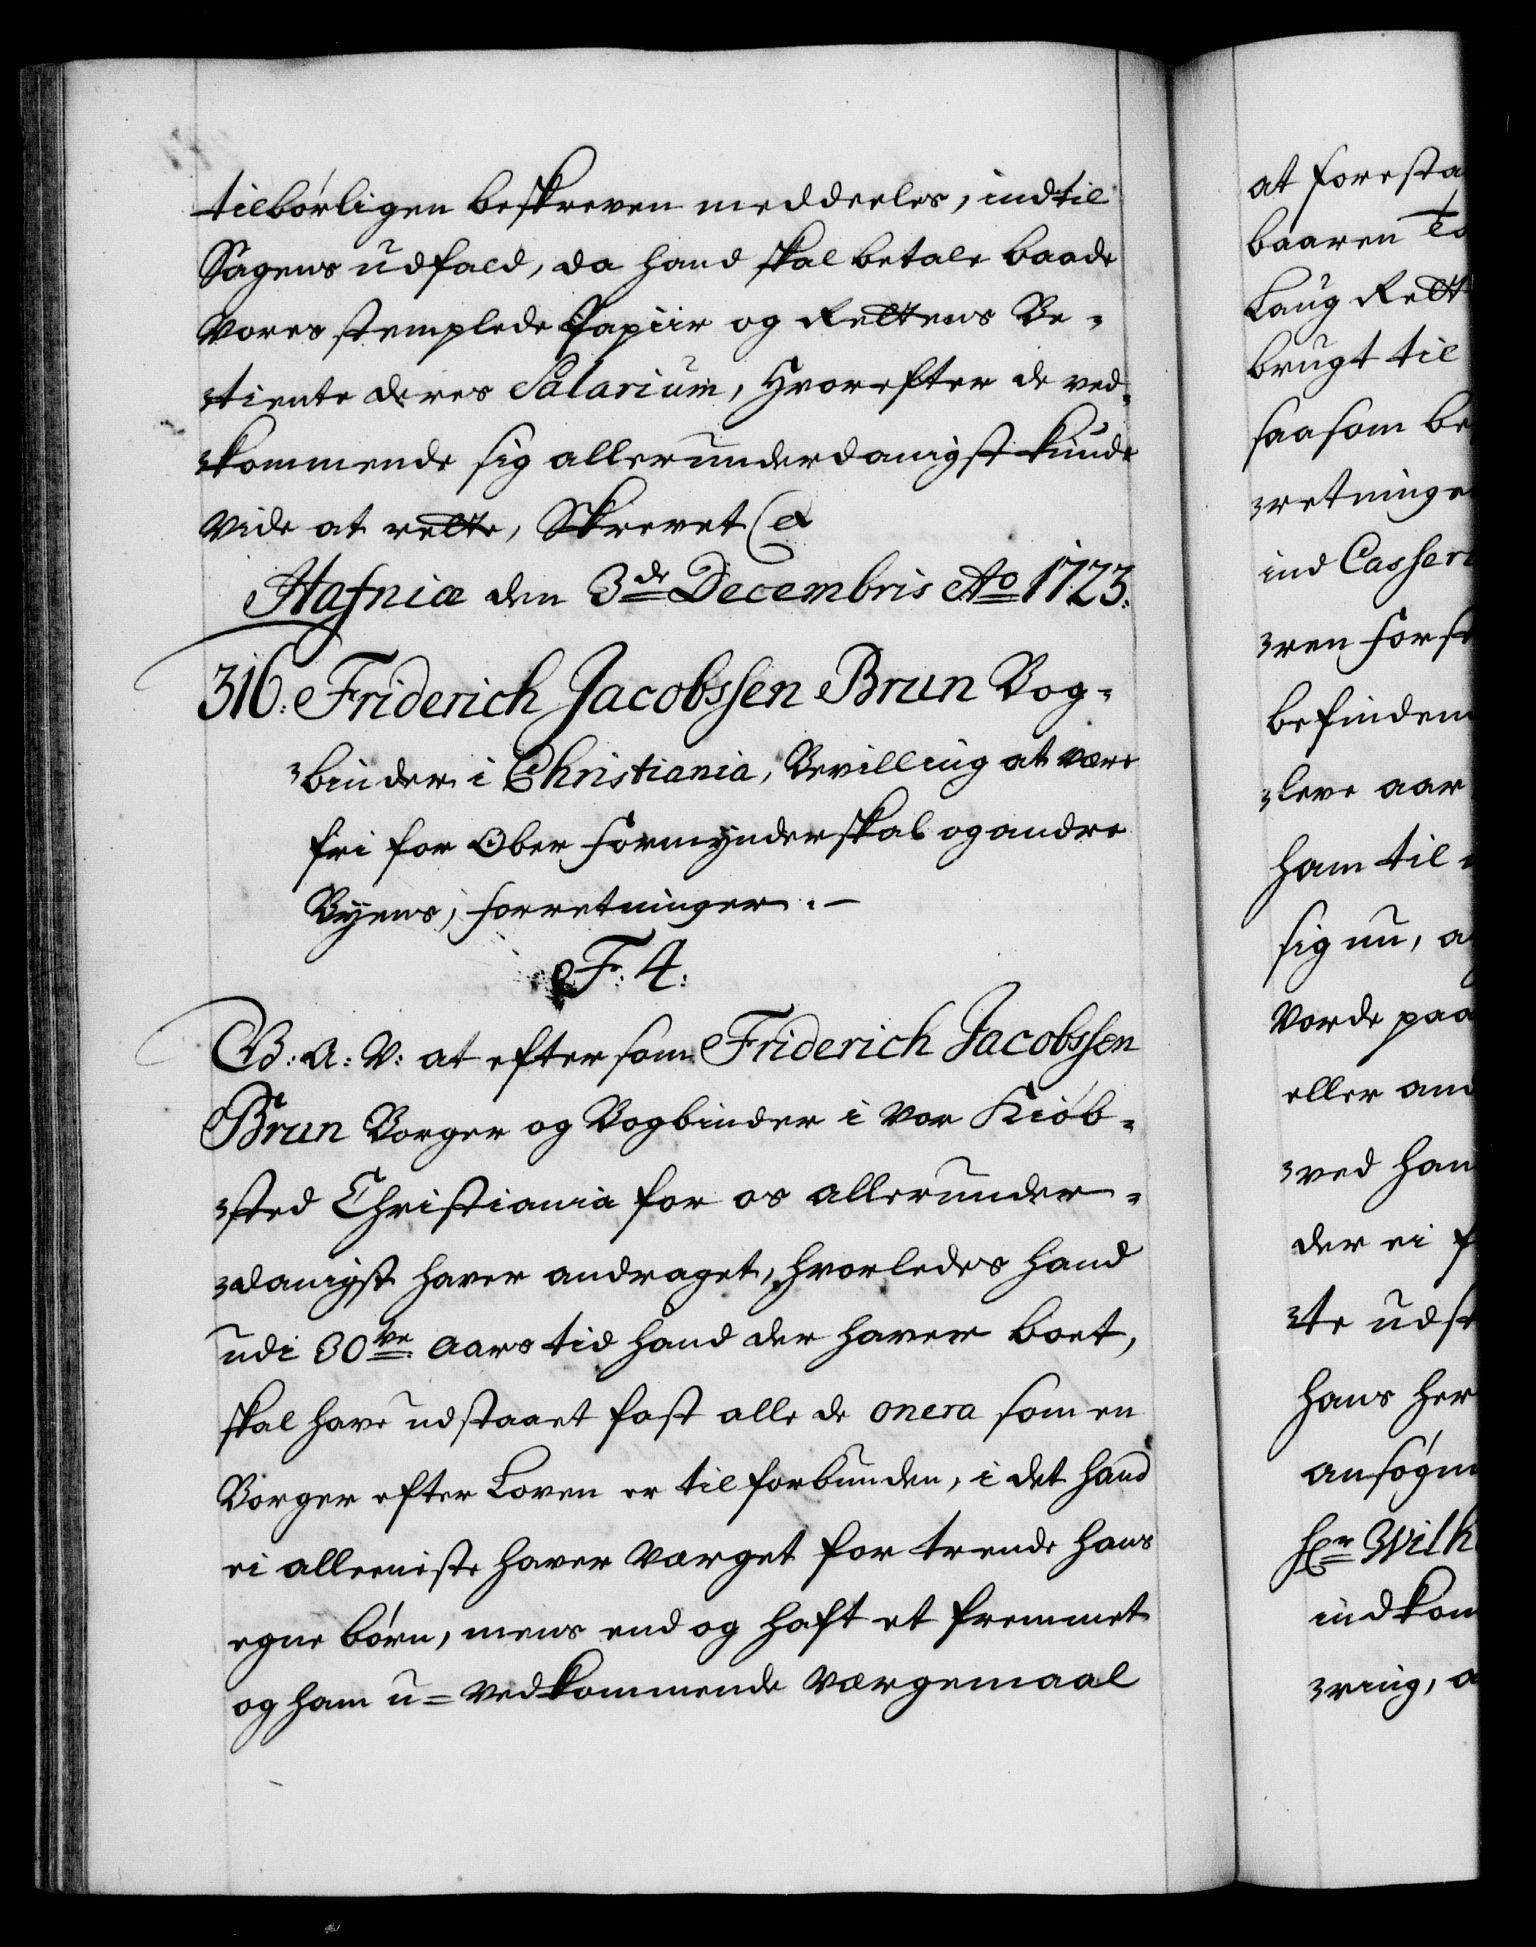 tilbørligen beskreven meddeeles, indtil
Sagens udfald, da hand skal betale baade
Vores stemplede Papiir og Rettens Be-
tiente deres Salarium, Hvorefter de ved-
kommende sig allerunderdanigst kunde
Vide at rette, Skrevet &
Hafniæ den 3de Decembris Ao 1723.
316. Friderich Jacobssen Brun Bog-
binder i Christiania, Bevilling at være
fri for Ober Formynderskab og andre
Byens forretninger. —
F. 4.
G: A: V: at efter som Friderich Jacobssen
Brun Borger og Bogbinder i Vor Kiøb-
sted Christiania for os allerunder-
danigst haver andraget, hvorledes hand
udi 30ve aars tid hand der haver boet,
skal have udstaaet fast alle de onera som en
Borger efter Loven er til forbunden, i det hand
ei alleeniste haver værget for trende hans
egne børn, mens end og haft et fremmet
og ham u=vedkommende Værgemaal
at foresta
baaren
Laug Rett
brugt til
saasom be
retninge
ind Casser
ren forst
befinden
leve aar
ham til
sig nu, a
Vorde paa
eller and
ved han
der ei f
te udst
hans her
ansøgn
Hr Wilh
indkom
ring, a